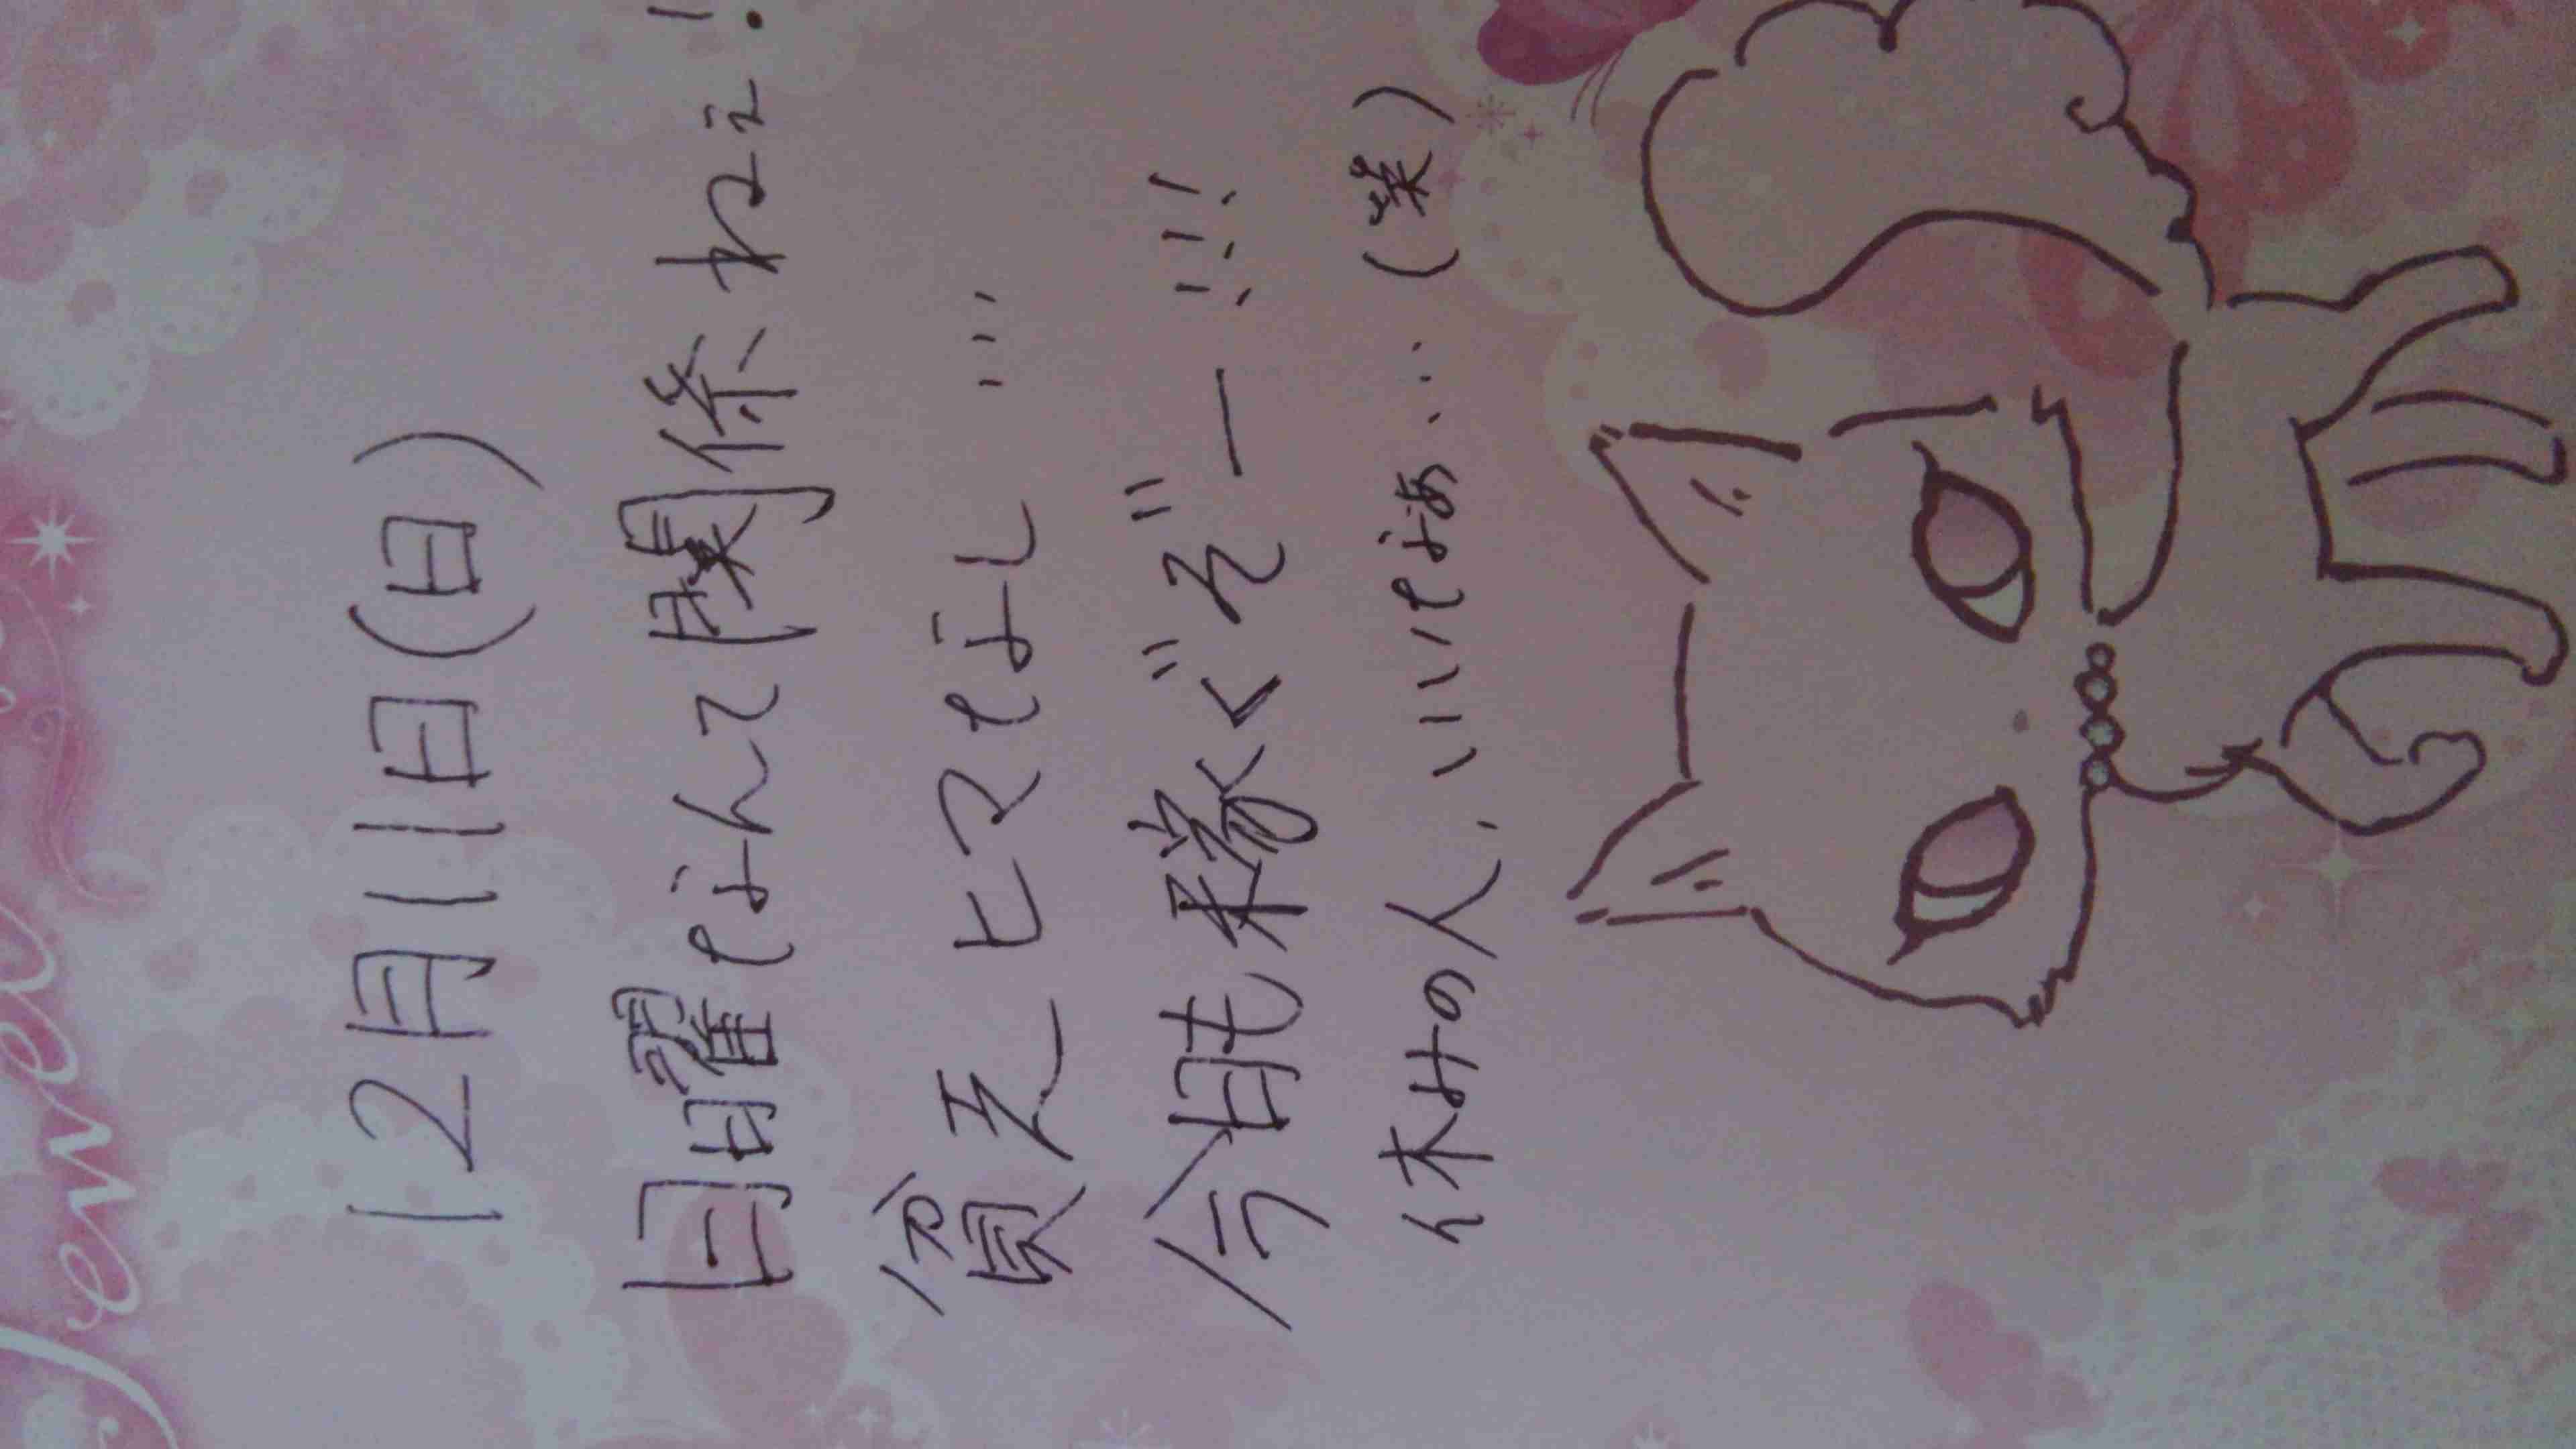 Jewel
12月11日(日)
日曜なんて関係ねえ!
貧乏ヒマなし…
今日も稼ぐぞー!!!
休みの人、いいなぁ…(笑)